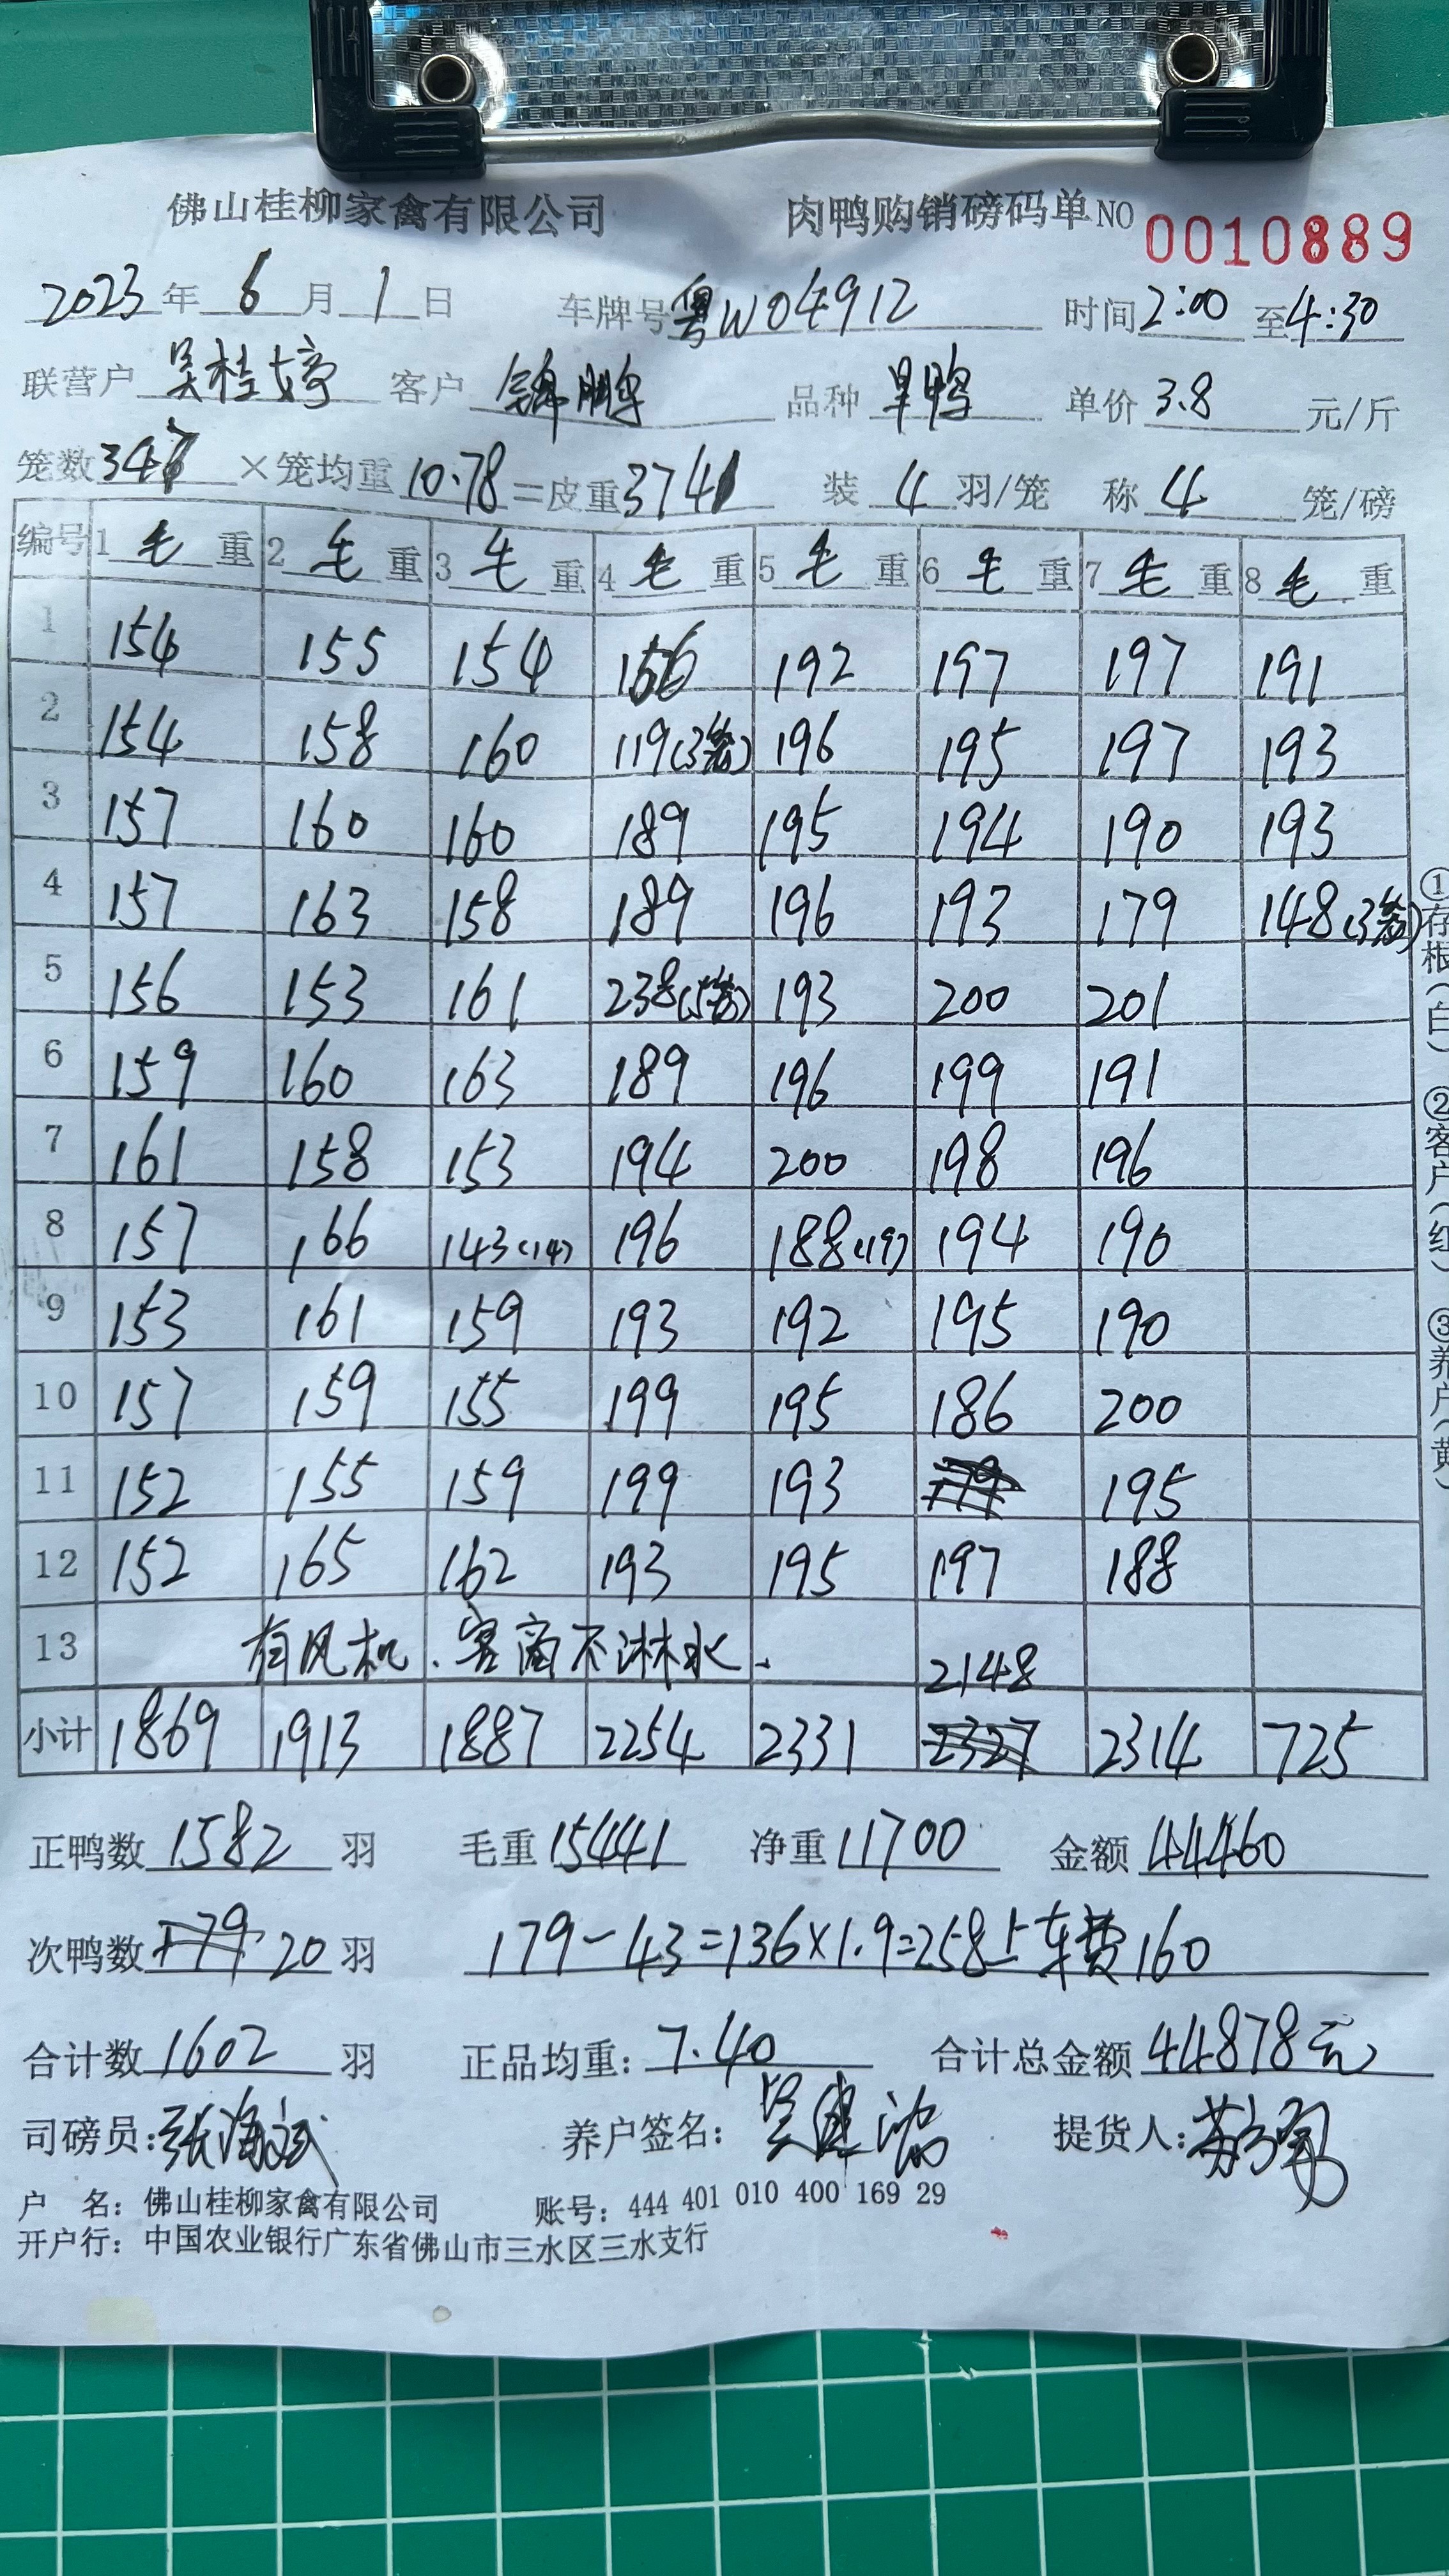 佛山桂柳家禽有限公司 肉鸭购销磅码单NO 0010889
2023年6月1日 车牌号粤W04912 时间2:00至4:30
联营户 吴桂婷 客户 锦鹏 品种 旱鸭 单价3.8 元/斤
笼数347×笼均重10.78=皮重3741 装4羽/笼 称4笼/磅
编号 1毛重 2毛重 3毛重 4毛重 5毛重 6毛重 7毛重 8毛重
1 154 155 154 156 192 197 197 191
2 154 158 160 119(3笼) 196 195 197 193
3 157 160 160 189 195 194 190 193
4 157 163 158 189 196 193 179 148(3笼)
5 156 153 161 238(5笼) 193 200 201
6 159 160 163 189 196 199 191
7 161 158 153 194 200 198 196
8 157 166 143(14) 196 188(19) 194 190
9 153 161 159 193 192 195 190
10 157 159 155 199 195 186 200
11 152 155 159 199 193 179 195
12 152 165 162 193 195 197 188
13 有风机.客商不淋水. 2148
小计 1869 1913 1887 2254 2331 2327 2314 725
正鸭数1582羽 毛重15441 净重11700 金额44460
次鸭数179 20羽 179-43=136×1.9=258 车费160
合计数1602羽 正品均重:7.40 合计总金额44878元
司磅员:张海斌 养户签名: 提货人:
户 名:佛山桂柳家禽有限公司 账号:444 401 010 400 169 29
开户行:中国农业银行广东省佛山市三水区三水支行
①存根(白) ②客户(红) ③养户(黄)